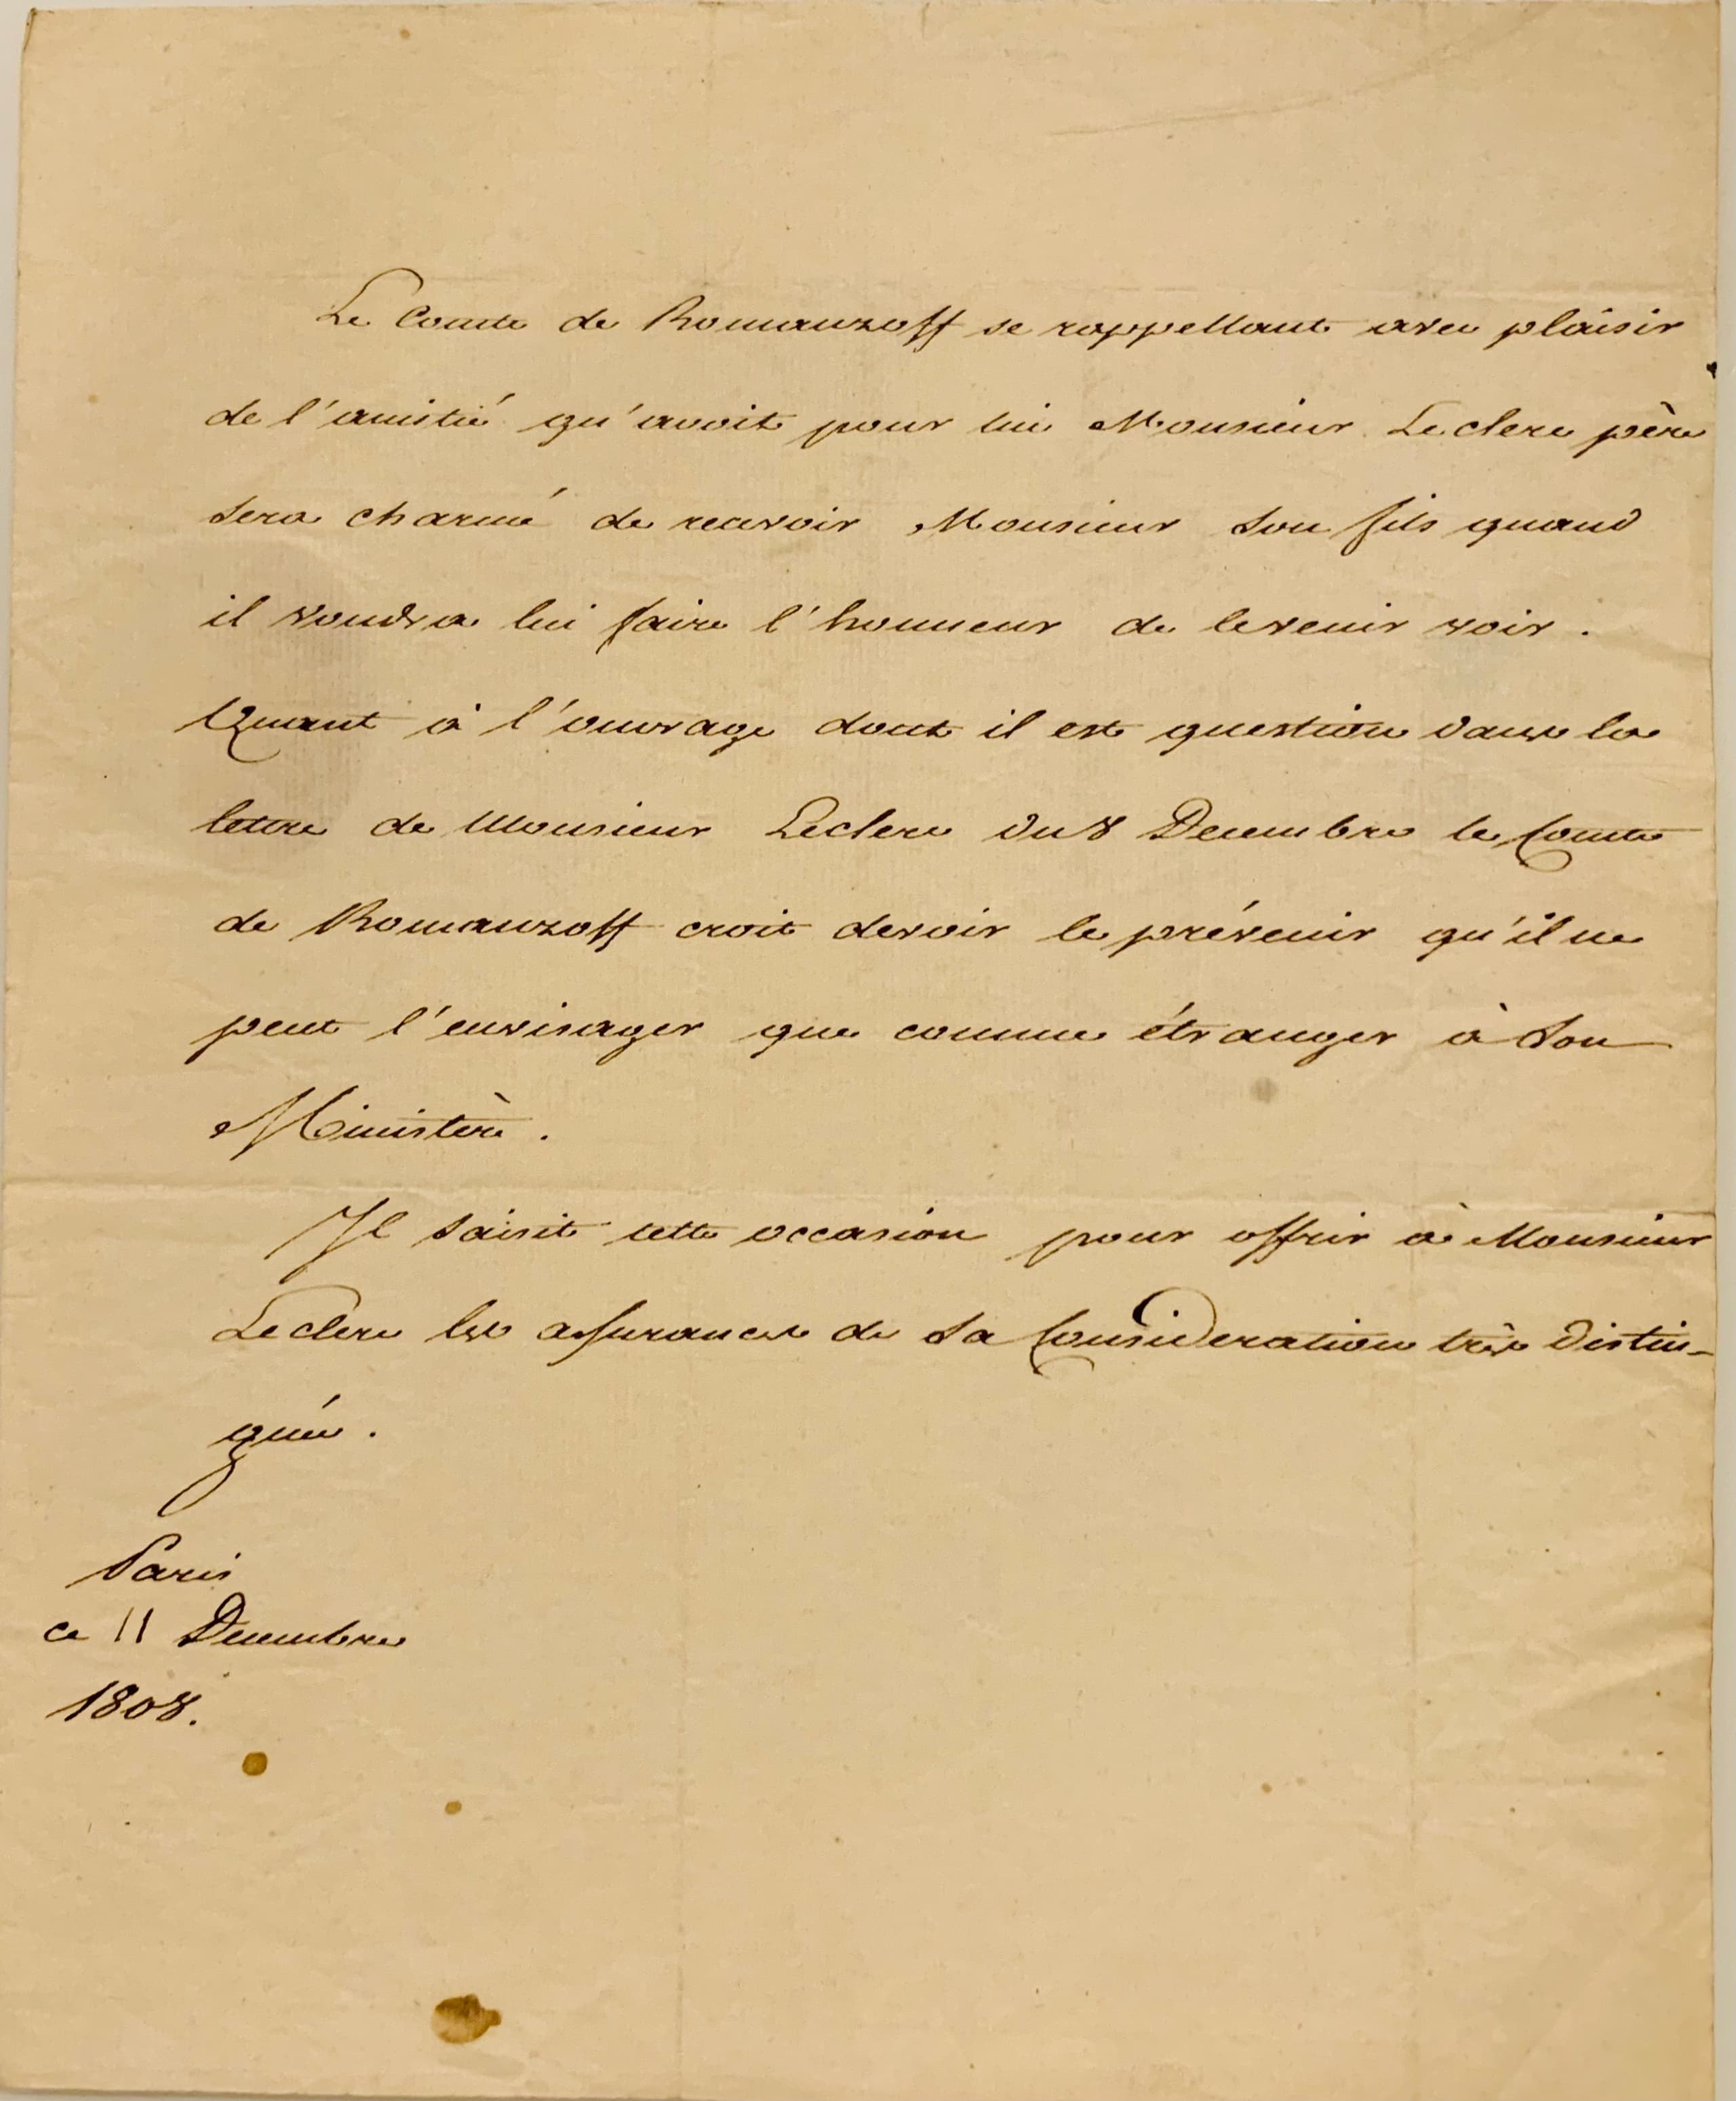 Le Comte de Romanzoff se rappellant avec plaisir
de l'amitié qu'avoit pour lui Monsieur Leclerc père
sera charmé de recevoir Monsieur son fils quand
il voudra lui faire l'honneur de le venir voir.
Quant à l'ouvrage dont il est question dans la
lettre de Monsieur Leclerc du 8 Decembre le Comte
de Romanzoff croit devoir le prévenir qu'il ne
peut l'envisager que comme étranger à son
Ministère.
Il saisit cette occasion pour offrir à Monsieur
Leclerc les assurances de sa Consideration très distin-
guée.
Paris
ce 11 Decembre
1808.